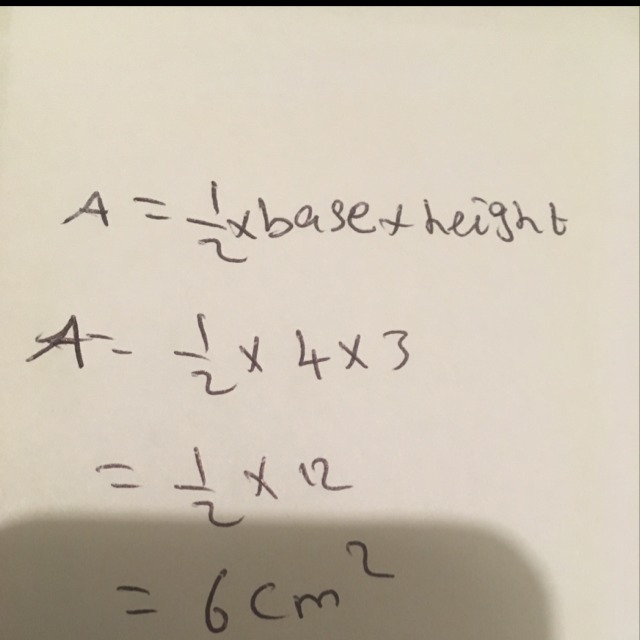 A = 1/2 × base × height
A = 1/2 × 4 × 3
= 1/2 × 12
= 6 cm²